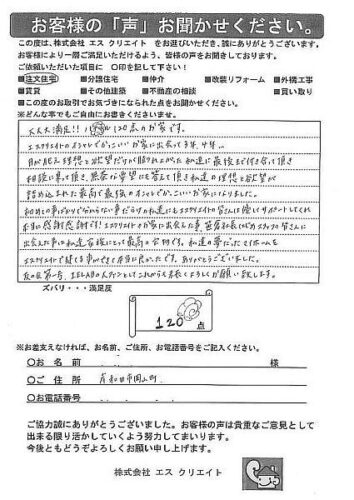 お客様の「声」お聞かせください。
この度は、株式会社 エス クリエイト をお選びいただき、誠にありがとうございます。
お客様により一層ご満足いただけるよう、皆様の声をお聞きしております。
ご依頼いただいた項目に ○印を記して下さい！
■注文住宅 ■分譲住宅 ■仲介 ■改装リフォーム ■外構工事
■賃貸 ■その他建築 ■不動産の相談 ■買い取り
■この度のお取引でお気づきになられた点をお聞かせください。
※どんな事でもご自由にお書きくださいませ。
大大大満足!! 120点のお家です。
エスクリエイトのオシャレでかっこいいお家に出会って
月が肥えた理想と欲望だけが膨れ上がった私達に最後まで付き合って頂き
相談に乗って頂き、無茶な要望にも答えて頂き私達の理想と欲望が
詰め込まれた最高で最強のオシャレでかっこいいお家になりました。
初めての事ばかりで分からない事だらけの私達にもエスクリエイトの皆さんは優しくサポートしてくれ
本当に感謝感謝です！エスクリエイトのお家に出会えた事、スタッフの皆さんに
出会えた事は私達家族にとって最高の宝物です。私達の夢だったマイホームを
エスクリエイトで建てる事ができて本当に良かったです。ありがとうございました。
これからも末長くよろしくお願い致します。
ズバリ・・・満足度
120点
※お差支えなければ、お名前、ご住所、お電話番号をご記入ください。
○お 名 前 様
○ご 住 所 岸和田市岡山町
○お電話番号
ご協力誠にありがとうございました。お客様の声は貴重なご意見として
出来る限り活かしていくよう努力してまいります。
今後ともどうぞよろしくお願い申し上げます。
株式会社 エス クリエイト